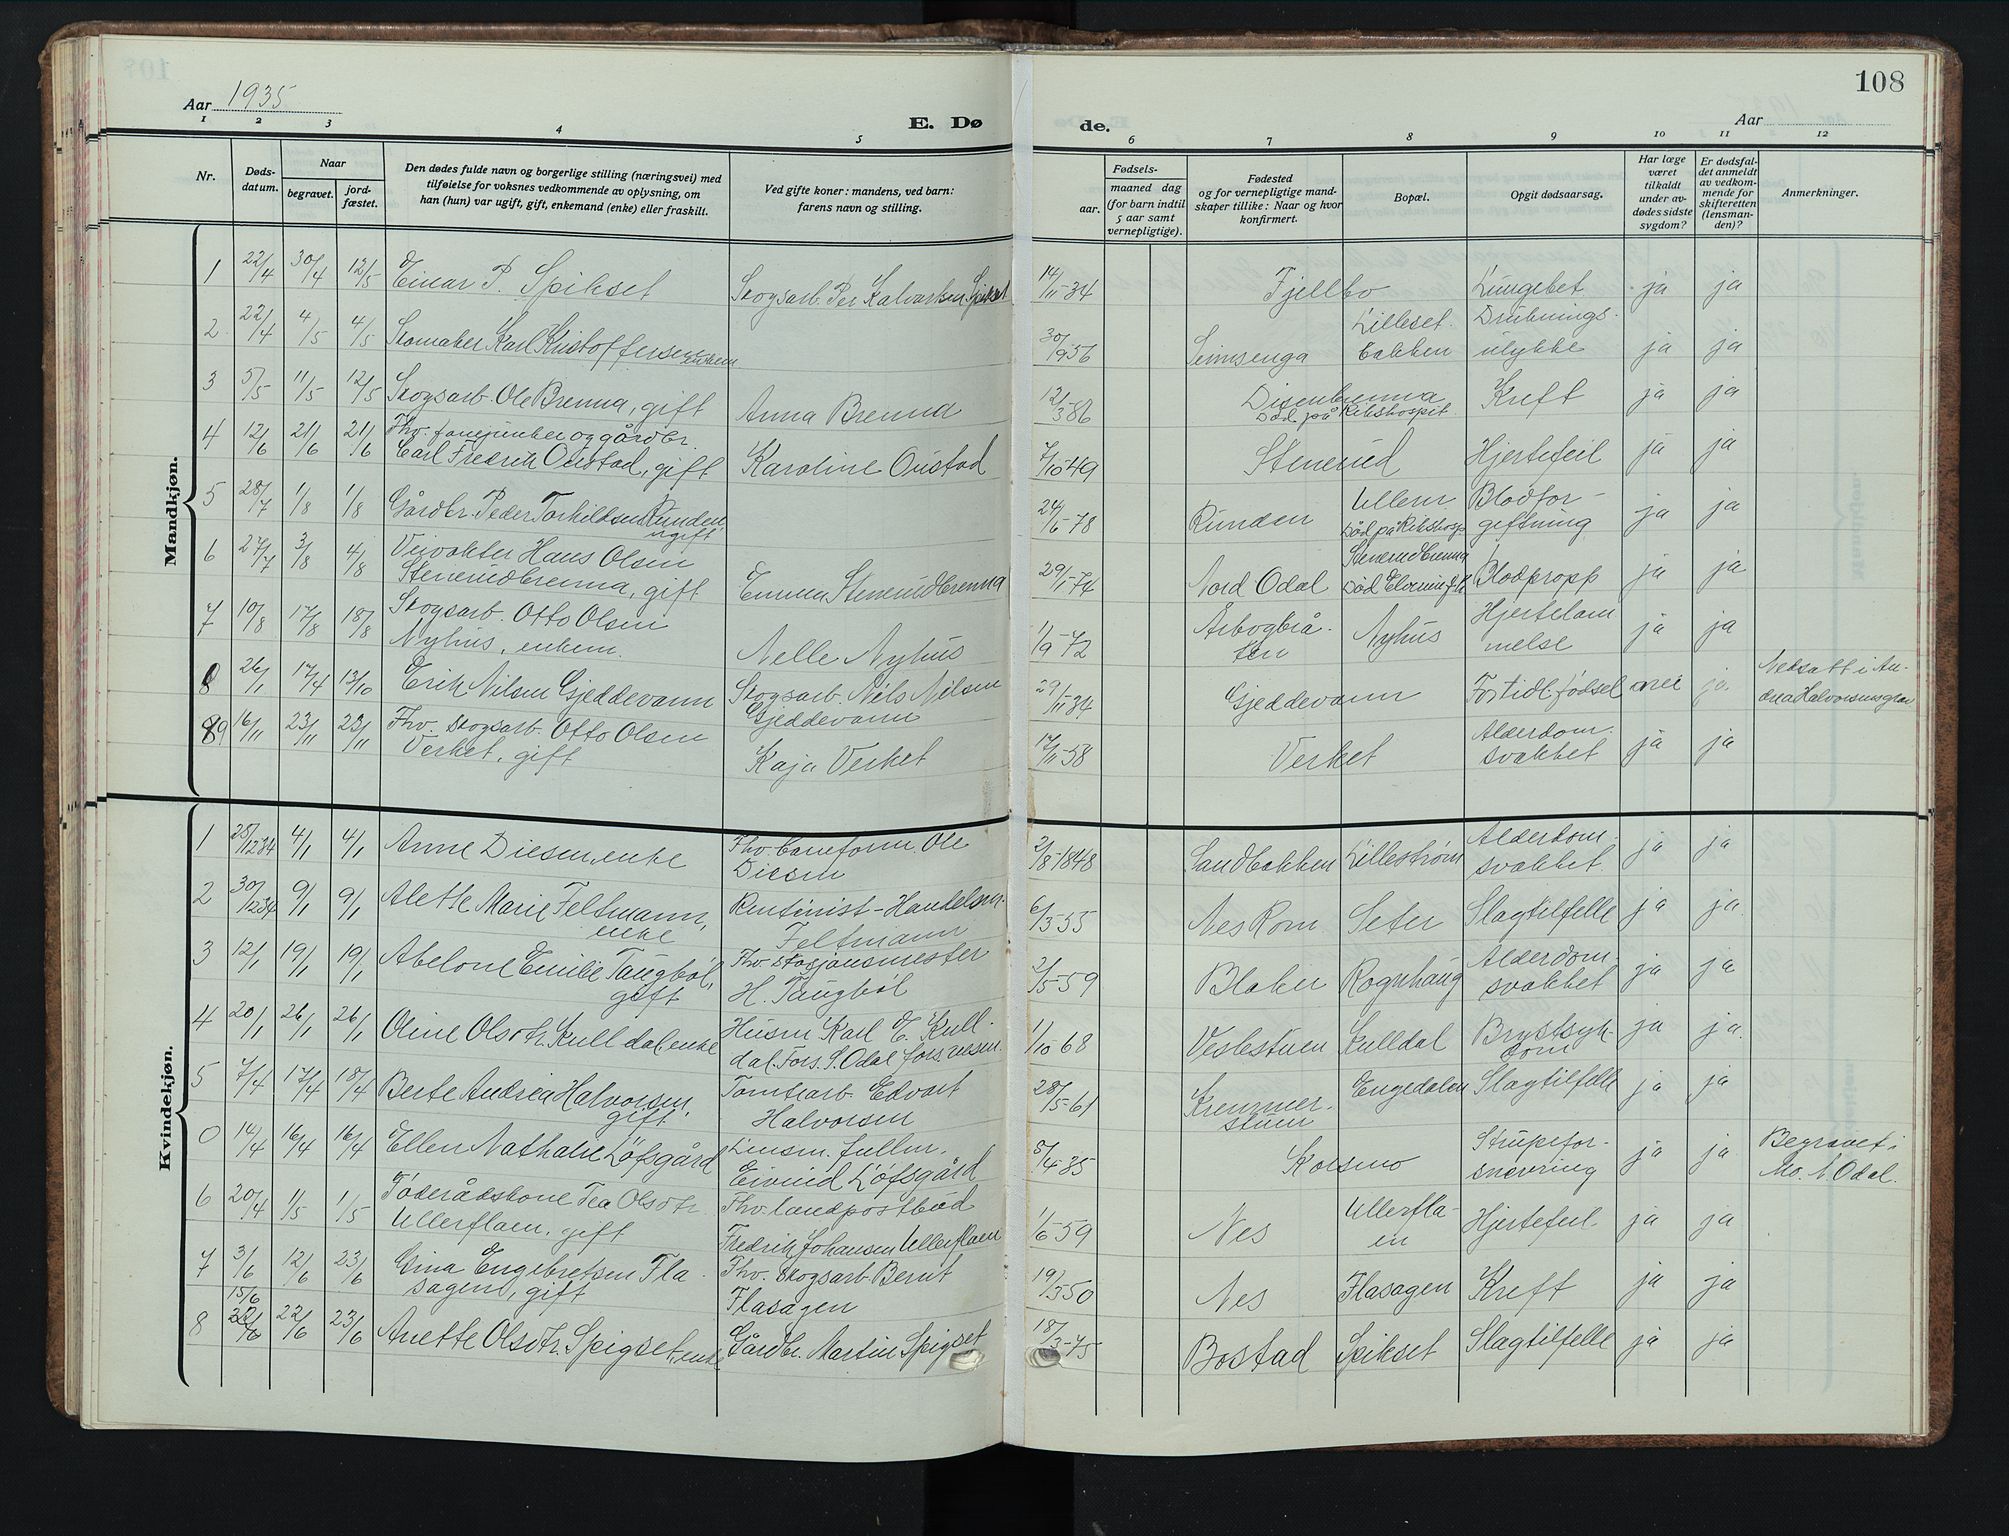 108
Aar 1935
E. Dø
de.
Aar
1 2 3 4 5 6 7 8 9 10 11 12
Nr.
Døds-
datum.
Naar
begravet.
jord-
fæstet.
Den dødes fulde navn og borgerlige stilling (næringsvei) med
tilføielse for voksnes vedkommende av oplysning, om
han (hun) var ugift, gift, enkemand (enke) eller fraskilt.
Ved gifte koner: mandens, ved barn:
farens navn og stilling.
Fødsels-
aar.
maaned dag
(for barn indtil
5 aar samt
vernepligtige).
Fødested
og for vernepligtige mand-
skaper tillike: Naar og hvor
konfirmert.
Bopæl.
Opgit dødsaarsag.
Har læge
været
tilkaldt
under av-
dødes sidste
sygdom?
Er dødsfal-
det anmeldt
av vedkom-
mende for
skifteretten
(lensman-
den)?
Anmerkninger.
Mandkjøn.
1 22/4 30/4 12/5 Einar P. Spikset Skogsarb. Per Halvorsen Spikset 14/11-34 Fjellbo Lungebet. ja ja
2 22/4 4/5 4/5 Skomaker Karl Kristoffersen enkem 30/1956 Seimsenga Lilleset- Druknings-
bakken ulykke ja ja
3 5/5 11/5 12/5 Skogsarb. Ole Brenna, gift Anna Brenna 12/3-86 Disenbrenna Kreft ja ja
Død på Rikshospit.
4 12/6 21/6 21/6 Fhv. fanejunker og gårdbr.
Carl Fredrik Oustad, gift Karoline Oustad 7/10-49 Stenerud Hjertefeil ja ja
5 28/7 1/8 1/8 Gårdbr. Peder Torkildsen Runden
ugift 24/6-78 Runden Ullern Blodfor-
Død på Rikshosp. giftning ja ja
6 27/7 3/8 4/8 Veivokter Hans Olsen
Stenerudbrenna, gift Emma Stenerudbrenna 29/1-74 Nord Odal Stenerudbrenna
Død Blodpropp ja ja
7 10/8 17/8 18/8 Skogsarb. Otto Olsen
Nyhus, enkem. Nelle Nyhus 1/9-72 Årbogbrå-
ten Nyhus Hjertelam
melse ja ja
8 26/1 17/4 13/10 Erik Nilsen Gjeddevann Skogsarb. Nils Nilsen
Gjeddevann 29/11-34 Gjeddevann For tidl. fødsel nei ja Nedsatt i An-
drea Halvorsens grav
89 16/11 23/11 23/11 Fhv. skogsarb. Otto Olsen
Verket, gift Kaja Verket 17/11-58 Verket Alderdom-
svakket ja ja
Kvindekjøn.
1 25/1234 4/1 4/1 Anne Diesen, enke Fhv. baneform. Ole
Diesen 2/8-1848 Sandbakken Lillestrøm Alderdom-
svakket. ja ja
2 30/1234 9/1 9/1 Alette Marie Feltmann,
enke Rentenist-Handelsm.
Feltmann 6/3-55 Nes Rom. Seter Slagtilfelle ja ja.
3 12/1 19/1 19/1 Abelone Emilie Taugbøl,
gift Fhv. stasjonsmester
H. Taugbøl 2/5-59 Blaker Rognhaug Alderdom-
svakket ja ja
4 20/1 26/1 26/1 Oline Olsdtr. Kulldal, enke Husm. Karl E. Kull-
dal. Fors. S. Odal forsvesen. 1/10 68 Veslestuen Kulldal Brystsyk-
dom ja ja.
5 7/4 17/4 18/4 Berte Andrea Halvorsen,
gift Tomtearb. Edvart
Halvorsen 28/5-61 Kremmer-
stuen Engedalen Slagtilfelle ja ja
0 14/4 16/4 16/4 Ellen Nathalie Løfsgård Lensm. fullm.
Eivind Løfsgård 5/4-35 Korsmo Strupefor-
snevring ja ja. Begravet i
Mo. N. Odal.
6 20/4 1/5 1/5 Føderådskone Tea Olsdtr.
Ullerflaen, gift Fhv. landpostbud
Fredrik Johansen Ullerflaen 1/6-59 Nes Ullerfla-
en Hjertefeil ja ja
7 3/6 12/6 23/6 Gina Engebretsen Fla-
sagen, gift Fhv. skogsarb. Bernt
Flasagen 19/3-50 Nes Flasagen Kreft ja ja
8 15/6 22/6 23/6 Anette Olsdtr. Spigset, enke Gårdbr. Martin Spigset 18/3-45 Bostad Spikset Slagtilfelle ja ja